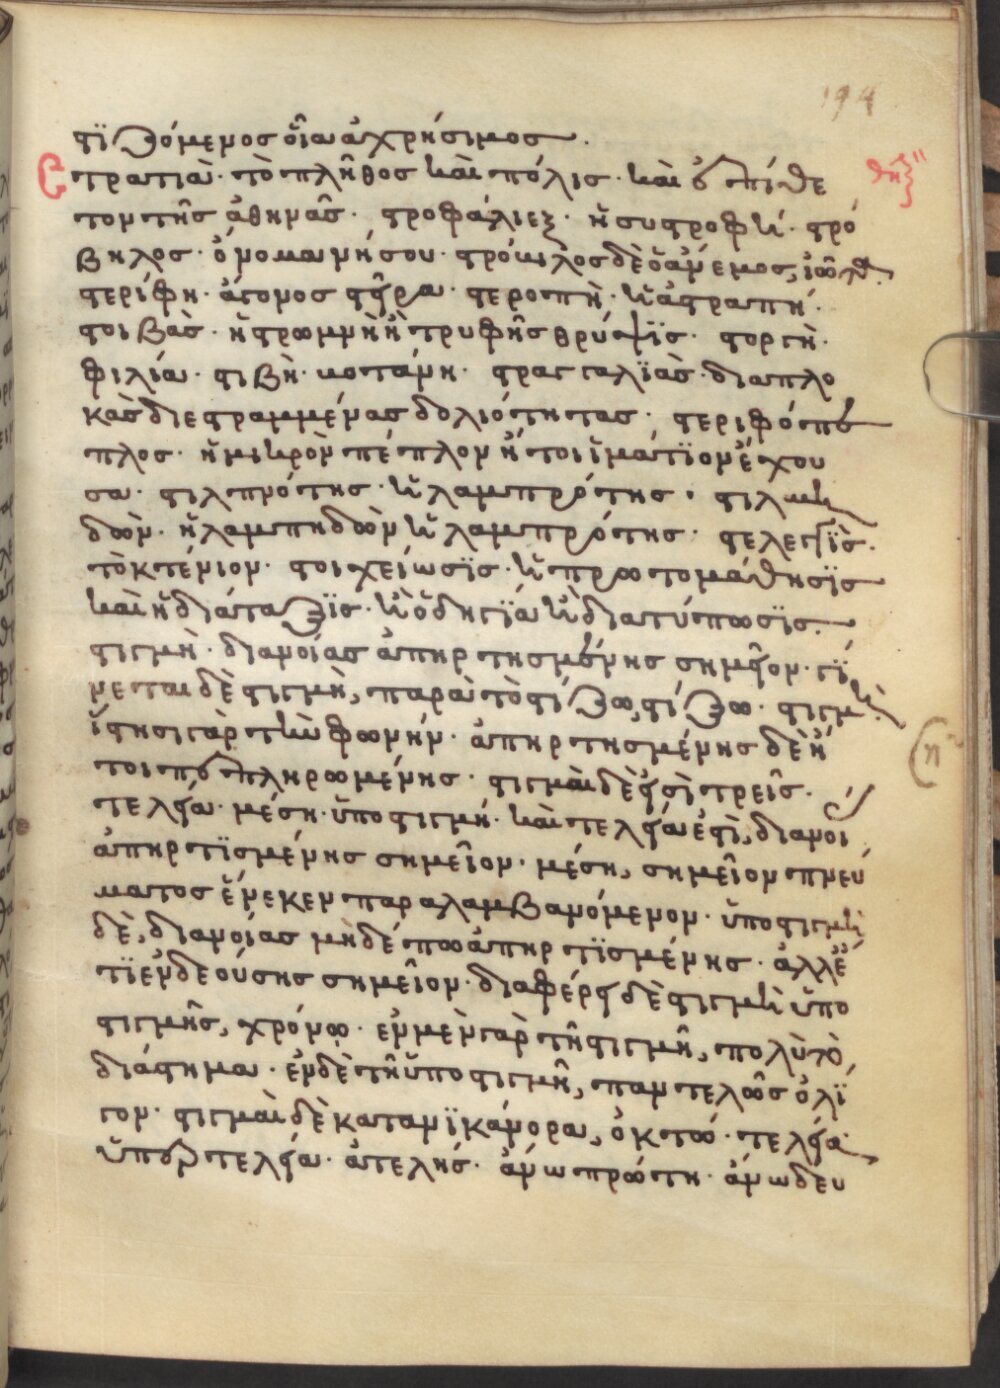 194
στϊζόμενος οἷα ἀχρήσιμος.
Στρατιὰ· τὸ πλῆθος καὶ πόλις· καὶ ἐπίθε
τον τῆς ἀθηνᾶς· στροφάλιγξ· ἡ συστροφή· στρό
βηλος· ὄνομα νήσου· στρόμβος δὲ ὁ ἄνεμος,
στερίφη· ἄτονος στεῖρα· στεροπὴ· ἡ ἀστραπή·
στοιβὰς· ἡ στρωμνὴ ἢ τρυφῆς θρύψϊς· στοργὴ·
φιλία· στιβὴ·
κὰς διεστραμμένας δολιότητας·
πλος· ἡ μικρὸν πέπλον ἤτοι ἱμάτϊον ἔχου
σα· στιλπνότης· ἡ λαμπρότης· στιλπη
δὼν· ἡ λαμπηδὼν ἡ λαμπρότης· στελεγγὶς·
τὸ κτένιον· στοιχείωσϊς· ἡ πρωτομάθησϊς
καὶ ἡ διάταξϊς· ἡ ὁδηγΐα ἡ διατύπωσϊς·
στιγμὴ· διανοίας ἀπηρτησμένης σημεῖον· γΐ
νεται δὲ στιγμὴ, παρὰ τὸ στίζω, στίζω· στιγμὴ
ἵστησι γὰρ τὴν φωνήν· ἀπηρτησμένης δὲ ἤ
τοι πεπληρωμένης· στιγμαὶ δὲ εἰσὶ τρεῖς·
τελεία· μέση· ὑποστιγμή· καὶ τελεία ἐστὶ, διανοι
ἀπηρτϊσμένης σημεῖον· μέση, σημεῖον πνεύ
ματος ἕνεκεν παραλαμβανόμενον· ὑποστιγμὴ
δὲ, διανοίας μηδέπω ἀπηρτϊσμένης· ἀλλ' ἔ
τϊ ἐνδεούσης σημεῖον· διαφέρει δὲ στιγμὴ ὑπο
στιγμῆς, χρόνω· ἐν μὲν γὰρ τῆ στιγμῆ, πολὺ τὸ
διάστημα· ἐν δὲ τῆ ὑποστιγμῆ, παντελῶς ὀλΐ
γον· στιγμαὶ δὲ κατα νϊκάνορα, ὀκτώ· τελεία·
ὑποτελεία· ἀτελής· ἄνω πρώτη· ἄνω δευ